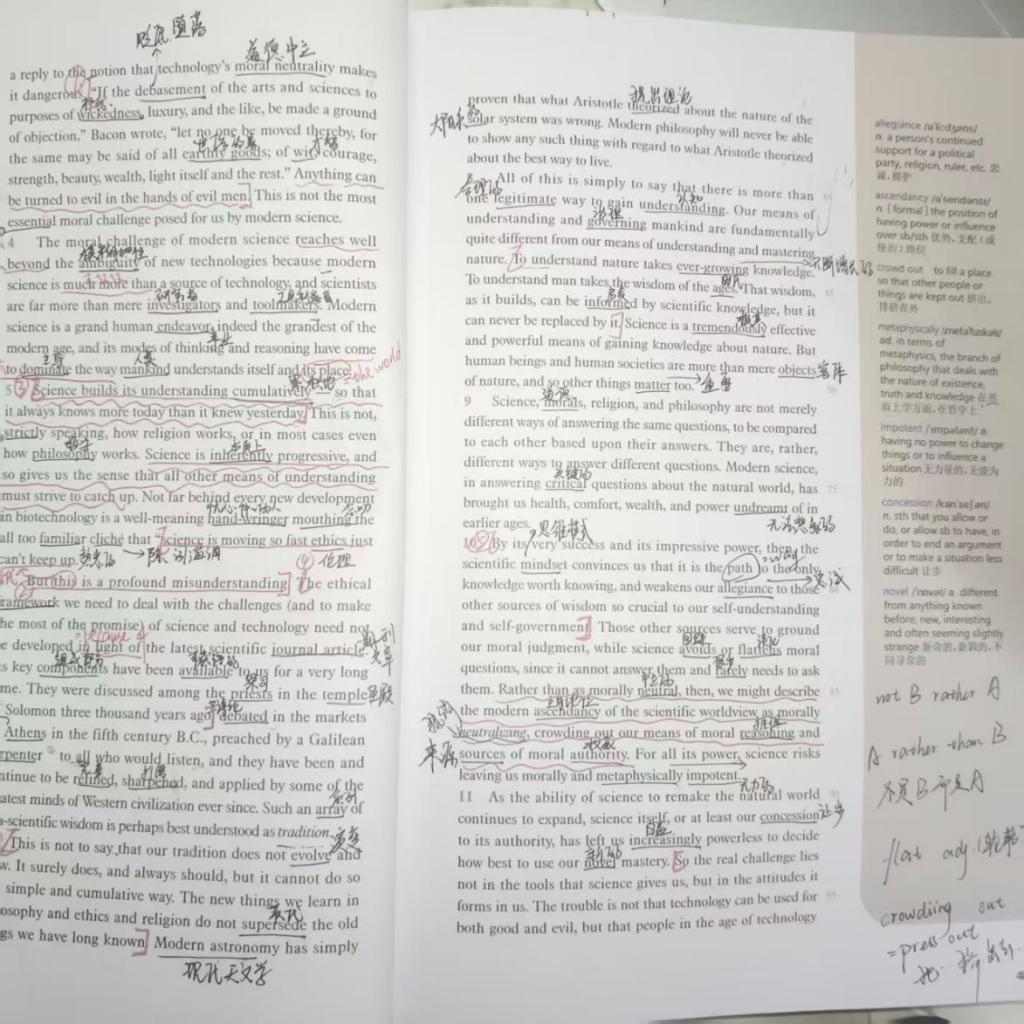 贬底 堕落
道德中立
a reply to the notion that technology's moral neutrality makes
it dangerous. "If the debasement of the arts and sciences to
purposes of wickedness, luxury, and the like, be made a ground
of objection," Bacon wrote, "let no one be moved thereby, for
the same may be said of all earthly goods; of wit, courage,
strength, beauty, wealth, light itself and the rest." Anything can
be turned to evil in the hands of evil men. This is not the most
essential moral challenge posed for us by modern science.
4 The moral challenge of modern science reaches well
beyond the ambiguity of new technologies because modern
science is much more than a source of technology, and scientists
are far more than mere investigators and toolmakers. Modern
science is a grand human endeavor, indeed the grandest of the
modern age, and its modes of thinking and reasoning have come
to dominate the way mankind understands itself and its place.
=the world
5 Science builds its understanding cumulatively so that
it always knows more today than it knew yesterday. This is not,
strictly speaking, how religion works, or in most cases even
how philosophy works. Science is inherently progressive, and
so gives us the sense that all other means of understanding
must strive to catch up. Not far behind every new development
in biotechnology is a well-meaning hand-wringer mouthing the
all too familiar cliché that "science is moving so fast ethics just
can't keep up."
陈词滥调
伦理
But this is a profound misunderstanding. The ethical
framework we need to deal with the challenges (and to make
the most of the promise) of science and technology need not
be developed in light of the latest scientific journal article.
s key components have been available to us for a very long
me. They were discussed among the priests in the temple
Solomon three thousand years ago, debated in the markets
Athens in the fifth century B.C., preached by a Galilean
rpenter② to all who would listen, and they have been and
ntinue to be refined, sharpened, and applied by some of the
atest minds of Western civilization ever since. Such an array of
-scientific wisdom is perhaps best understood as tradition.
This is not to say that our tradition does not evolve and
w. It surely does, and always should, but it cannot do so
simple and cumulative way. The new things we learn in
osophy and ethics and religion do not supersede the old
gs we have long known. Modern astronomy has simply
现代天文学
提出理论
proven that what Aristotle theorized about the nature of the
solar system was wrong. Modern philosophy will never be able
to show any such thing with regard to what Aristotle theorized
about the best way to live.
All of this is simply to say that there is more than
one legitimate way to gain understanding. Our means of
understanding and governing mankind are fundamentally
quite different from our means of understanding and mastering
nature. To understand nature takes ever-growing knowledge.
不断增长的
To understand man takes the wisdom of the ages. That wisdom,
as it builds, can be informed by scientific knowledge, but it
can never be replaced by it. Science is a tremendously effective
and powerful means of gaining knowledge about nature. But
human beings and human societies are more than mere objects
of nature, and so other things matter too.
70
9 Science, morals, religion, and philosophy are not merely
different ways of answering the same questions, to be compared
to each other based upon their answers. They are, rather,
different ways to answer different questions. Modern science,
in answering critical questions about the natural world, has
75
brought us health, comfort, wealth, and power undreamt of in
earlier ages.
思维模式
10 By its very success and its impressive power, then, the
scientific mindset convinces us that it is the path to the only
=way
knowledge worth knowing, and weakens our allegiance to those
忠诚
other sources of wisdom so crucial to our self-understanding
and self-government. Those other sources serve to ground
our moral judgment, while science avoids or flattens moral
questions, since it cannot answer them and rarely needs to ask
them. Rather than as morally neutral, then, we might describe
85
the modern ascendancy of the scientific worldview as morally
neutralizing, crowding out our means of moral reasoning and
sources of moral authority. For all its power, science risks
leaving us morally and metaphysically impotent.
11 As the ability of science to remake the natural world
continues to expand, science itself, or at least our concession
让步
to its authority, has left us increasingly powerless to decide
how best to use our novel mastery. So the real challenge lies
not in the tools that science gives us, but in the attitudes it
forms in us. The trouble is not that technology can be used for
95
both good and evil, but that people in the age of technology
allegiance /əˈliːdʒəns/
n. a person's continued
support for a political
party, religion, ruler, etc. 忠
诚, 拥护
ascendancy /əˈsendənsi/
n. [formal] the position of
having power or influence
over sb/sth 优势, 支配(或
统治)地位
crowd out to fill a place
so that other people or
things are kept out 挤出,
排挤在外
metaphysically /ˌmetəˈfɪzɪkəli/
ad. in terms of
metaphysics, the branch of
philosophy that deals with
the nature of existence,
truth and knowledge 在形
而上学方面, 在哲学上
impotent /ˈɪmpətənt/ a.
having no power to change
things or to influence a
situation 无力量的, 无能为
力的
concession /kənˈseʃən/
n. sth that you allow or
do, or allow sb to have, in
order to end an argument
or to make a situation less
difficult 让步
novel /ˈnɒvəl/ a. different
from anything known
before; new, interesting
and often seeming slightly
strange 新奇的, 新颖的, 不
同寻常的
not B rather A
A rather than B
不是B而是A
flat adj.
crowding out
=press out